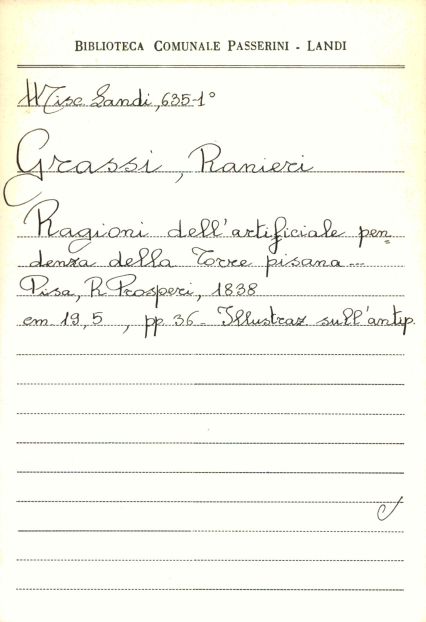 BIBLIOTECA COMUNALE PASSERINI - LANDI
Misc. Landi, 635-1°
Grassi, Ranieri
Ragioni dell'artificiale pen
denza della Torre pisana ...
Pisa, R. Prosperi, 1838
cm. 19,5 , pp. 36 - Illustraz. sull'antip.